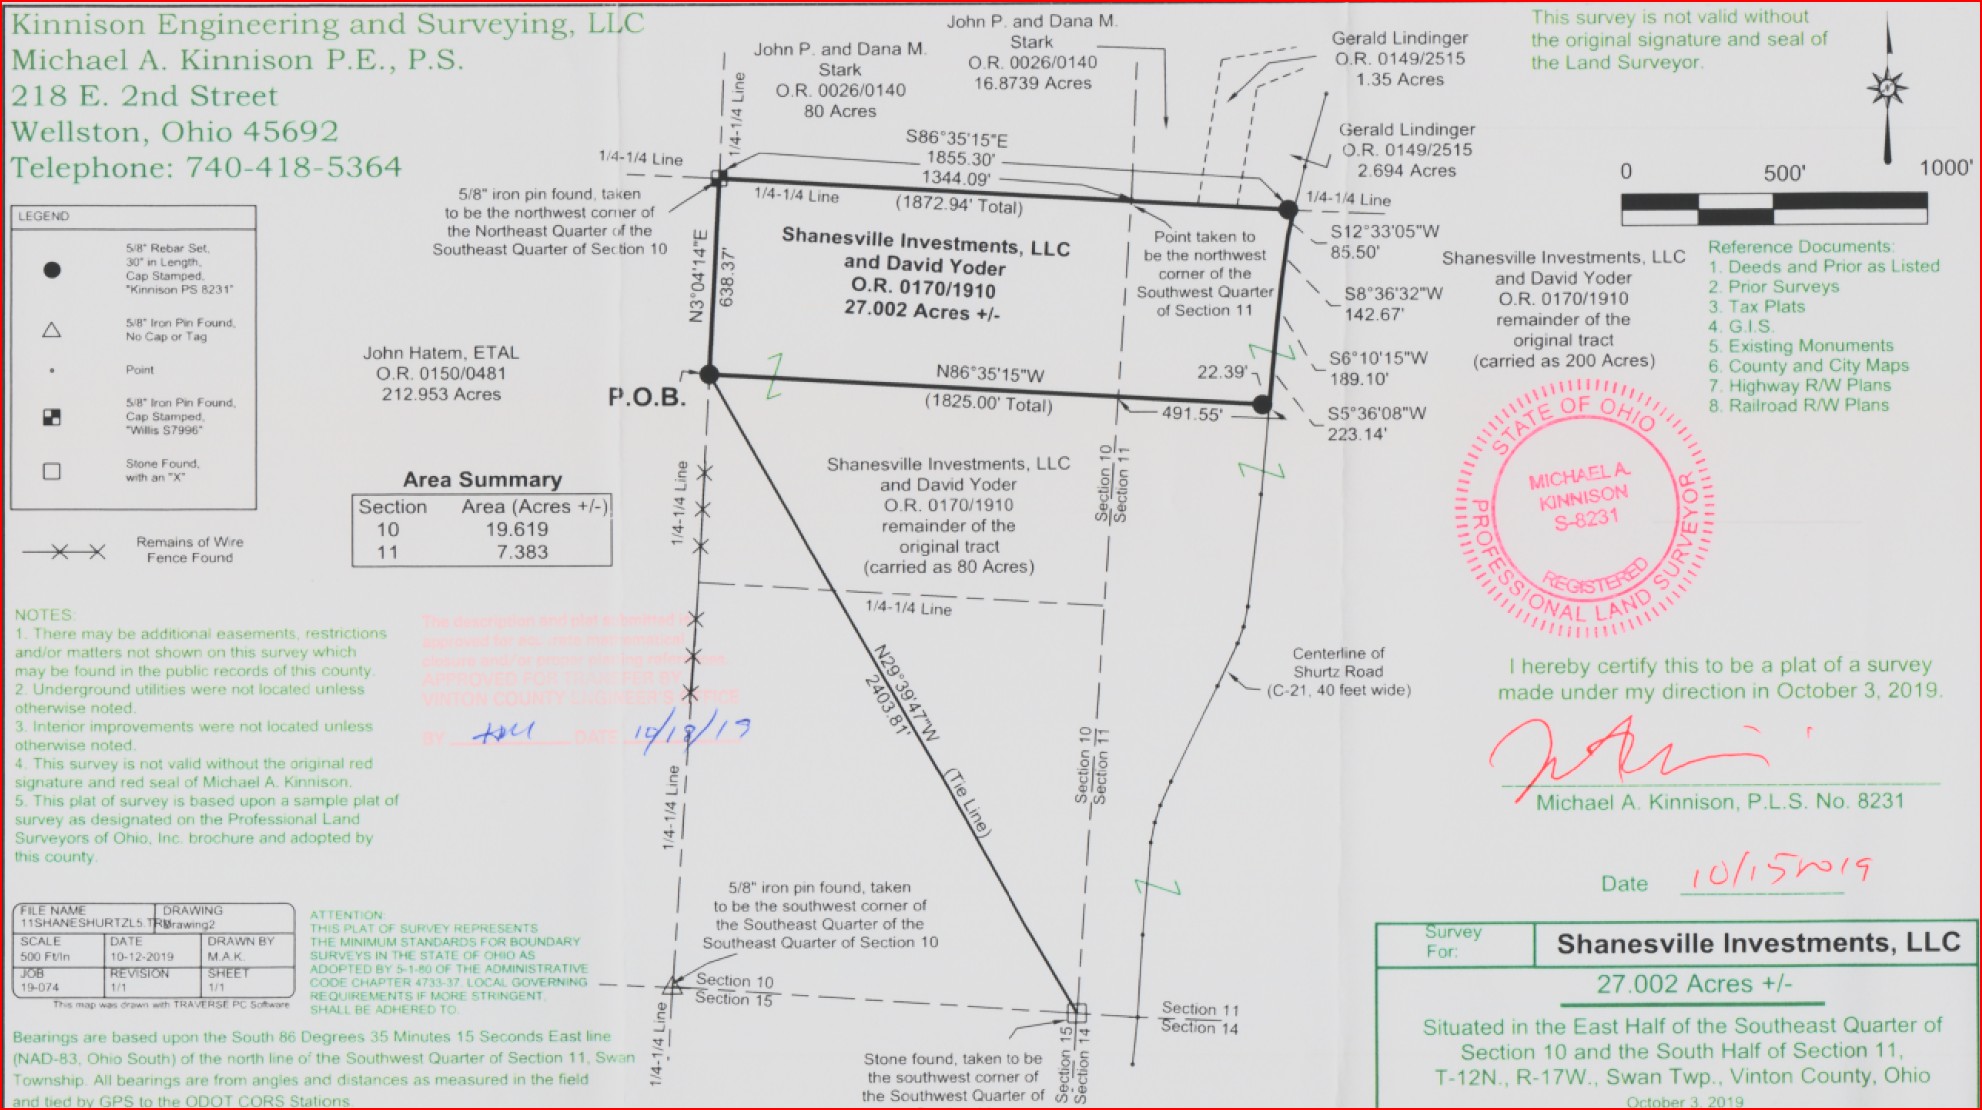 Kinnison Engineering and Surveying, LLC
Michael A. Kinnison P.E., P.S.
218 E. 2nd Street
Wellston, Ohio 45692
Telephone: 740-418-5364
LEGEND
5/8" Rebar Set,
30" in Length,
Cap Stamped,
"Kinnison PS 8231"
5/8" Iron Pin Found,
No Cap or Tag
Point
5/8" Iron Pin Found,
Cap Stamped,
"Willis S7996"
Stone Found,
with an "X"
Remains of Wire
Fence Found
John P. and Dana M.
Stark
O.R. 0026/0140
80 Acres
John P. and Dana M.
Stark
O.R. 0026/0140
16.8739 Acres
Gerald Lindinger
O.R. 0149/2515
1.35 Acres
Gerald Lindinger
O.R. 0149/2515
2.694 Acres
This survey is not valid without
the original signature and seal of
the Land Surveyor.
0 500' 1000'
1/4-1/4 Line
1/4-1/4 Line
S86°35'15"E
1855.30'
1344.09'
(1872.94' Total)
1/4-1/4 Line
1/4-1/4 Line
5/8" iron pin found, taken
to be the northwest corner of
the Northeast Quarter of the
Southeast Quarter of Section 10
N3°04'14"E
638.37'
Shanesville Investments, LLC
and David Yoder
O.R. 0170/1910
27.002 Acres +/-
Point taken to
be the northwest
corner of the
Southwest Quarter
of Section 11
S12°33'05"W
85.50'
S8°36'32"W
142.67'
S6°10'15"W
189.10'
S5°36'08"W
223.14'
Shanesville Investments, LLC
and David Yoder
O.R. 0170/1910
remainder of the
original tract
(carried as 200 Acres)
Reference Documents:
1. Deeds and Prior as Listed
2. Prior Surveys
3. Tax Plats
4. G.I.S.
5. Existing Monuments
6. County and City Maps
7. Highway R/W Plans
8. Railroad R/W Plans
John Hatem, ETAL
O.R. 0150/0481
212.953 Acres
P.O.B.
N86°35'15"W
(1825.00' Total)
22.39'
491.55'
Area Summary
Section Area (Acres +/-)
10 19.619
11 7.383
Shanesville Investments, LLC
and David Yoder
O.R. 0170/1910
remainder of the
original tract
(carried as 80 Acres)
1/4-1/4 Line
Section 10
Section 11
1/4-1/4 Line
N29°39'47"W
2403.81'
(Tie Line)
Section 10
Section 11
1/4-1/4 Line
Centerline of
Shurtz Road
(C-21, 40 feet wide)
STATE OF OHIO
MICHAEL A.
KINNISON
S-8231
REGISTERED
PROFESSIONAL LAND SURVEYOR
NOTES:
1. There may be additional easements, restrictions
and/or matters not shown on this survey which
may be found in the public records of this county.
2. Underground utilities were not located unless
otherwise noted.
3. Interior improvements were not located unless
otherwise noted.
4. This survey is not valid without the original red
signature and red seal of Michael A. Kinnison.
5. This plat of survey is based upon a sample plat of
survey as designated on the Professional Land
Surveyors of Ohio, Inc. brochure and adopted by
this county.
The description and plat submitted
approved for
closure and/or
APPROVED FOR TRANSFER BY
VINTON COUNTY ENGINEER'S OFFICE
BY DATE 10/18/19
I hereby certify this to be a plat of a survey
made under my direction in October 3, 2019.
Michael A. Kinnison, P.L.S. No. 8231
Date 10/15/2019
FILE NAME DRAWING
11SHANESHURTZL5.TRV Drawing2
SCALE DATE DRAWN BY
500 Ft/In 10-12-2019 M.A.K.
JOB REVISION SHEET
19-074 1/1 1/1
This map was drawn with TRAVERSE PC Software
ATTENTION:
THIS PLAT OF SURVEY REPRESENTS
THE MINIMUM STANDARDS FOR BOUNDARY
SURVEYS IN THE STATE OF OHIO AS
ADOPTED BY 5-1-80 OF THE ADMINISTRATIVE
CODE CHAPTER 4733-37. LOCAL GOVERNING
REQUIREMENTS IF MORE STRINGENT,
SHALL BE ADHERED TO.
Bearings are based upon the South 86 Degrees 35 Minutes 15 Seconds East line
(NAD-83, Ohio South) of the north line of the Southwest Quarter of Section 11, Swan
Township. All bearings are from angles and distances as measured in the field
and tied by GPS to the ODOT CORS Stations.
5/8" iron pin found, taken
to be the southwest corner of
the Southeast Quarter of the
Southeast Quarter of Section 10
Section 10
Section 15
1/4-1/4 Line
Section 11
Section 14
Section 15
Section 14
Stone found, taken to be
the southwest corner of
the Southwest Quarter of
Survey
For:
Shanesville Investments, LLC
27.002 Acres +/-
Situated in the East Half of the Southeast Quarter of
Section 10 and the South Half of Section 11,
T-12N., R-17W., Swan Twp., Vinton County, Ohio
October 3, 2019